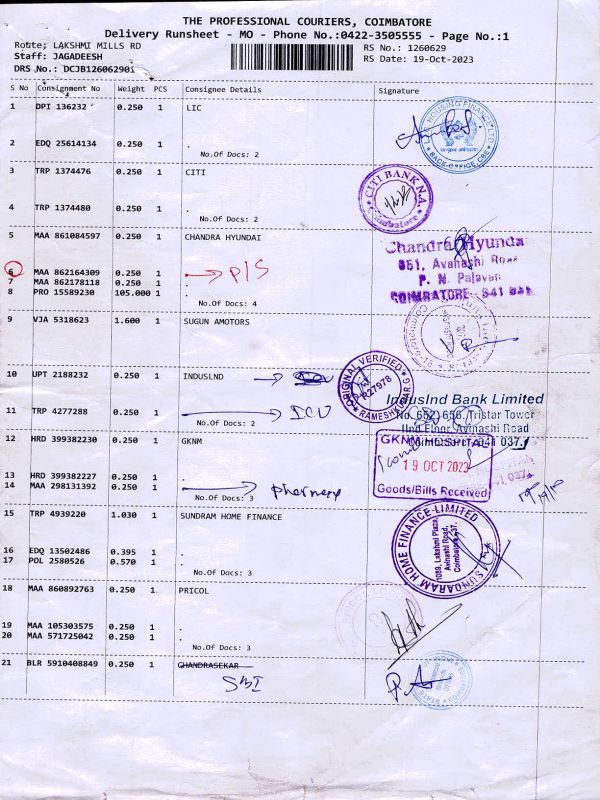 THE PROFESSIONAL COURIERS, COIMBATORE
Delivery Runsheet - MO - Phone No.:0422-3505555 - Page No.:1
Route; LAKSHMI MILLS RD RS No.: 1260629
Staff: JAGADEESH RS Date: 19-Oct-2023
DRS No.: DCJB126062901
S No Consignment No Weight PCS Consignee Details Signature
1 DPI 136232 0.250 1 LIC
HOUSING FINANCE LTD
BACK OFFICE CBE
2 EDQ 25614134 0.250 1 .
No.Of Docs: 2
3 TRP 1374476 0.250 1 CITI
CITI BANK N.A.
Coimbatore
4 TRP 1374480 0.250 1 .
No.Of Docs: 2
5 MAA 861084597 0.250 1 CHANDRA HYUNDAI
Chandra Hyundai
851, Avanashi Road
P. N. Palayam
COIMBATORE - 641
6 MAA 862164309 0.250 1 P/S
7 MAA 862178118 0.250 1 .
8 PRO 15589230 105.000 1 .
No.Of Docs: 4
9 VJA 5318623 1.600 1 SUGUN AMOTORS
ORIGINAL VERIFIED
R27978
10 UPT 2188232 0.250 1 INDUSLND
IndusInd Bank Limited
No. 652-656, Tristar Tower
IInd Floor, Avinashi Road
037.
11 TRP 4277288 0.250 1 . ICU
No.Of Docs: 2
12 HRD 399382230 0.250 1 GKNM
GKNM HOSPITAL
19 OCT 2023
Goods/Bills Received
13 HRD 399382227 0.250 1 .
14 MAA 298131392 0.250 1 . pharmacy
No.Of Docs: 3
15 TRP 4939220 1.030 1 SUNDRAM HOME FINANCE
SUNDARAM HOME FINANCE LIMITED
1089, Lakshmi Plaza,
Avinashi Road,
Coimbatore
16 EDQ 13502486 0.395 1 .
17 POL 2580526 0.570 1 .
No.Of Docs: 3
18 MAA 860892763 0.250 1 PRICOL
19 MAA 105303575 0.250 1 .
20 MAA 571725042 0.250 1 .
No.Of Docs: 3
21 BLR 5910408849 0.250 1 CHANDRASEKAR
SBI